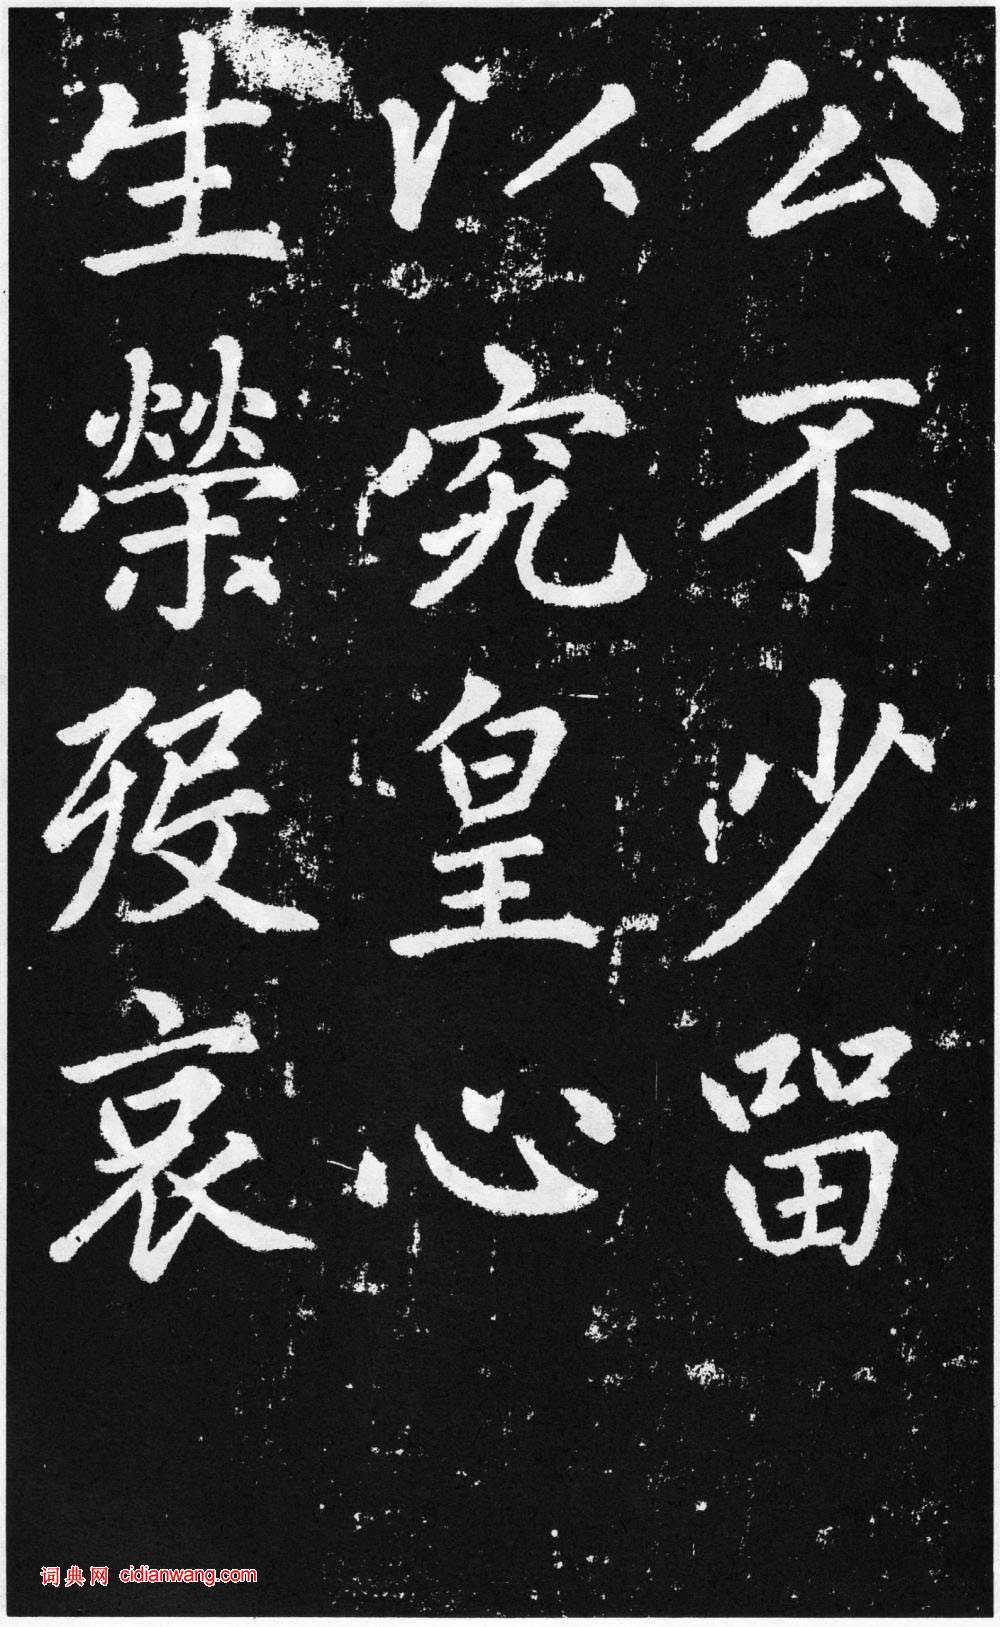 公不少留
以究皇心
生榮歿哀
词典网 cidianwang.com